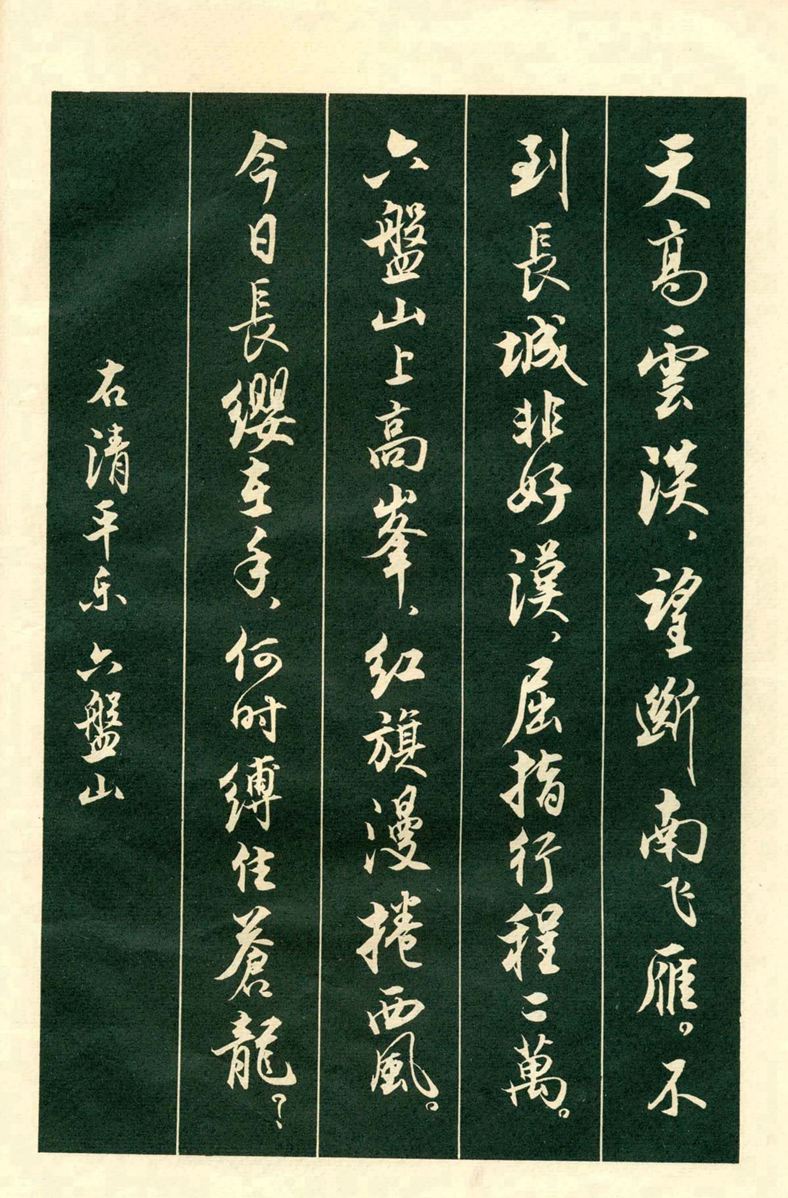 天高雲淡、望斷南飞雁。不
到長城非好漢、屈指行程二萬。
六盤山上高峯、红旗漫捲西風。
今日長纓在手、何时縛住蒼龍？
右清平乐 六盤山